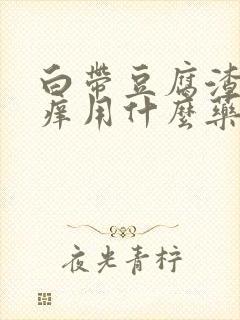 白带豆腐渣
痒用什麼藥
夜光青柠